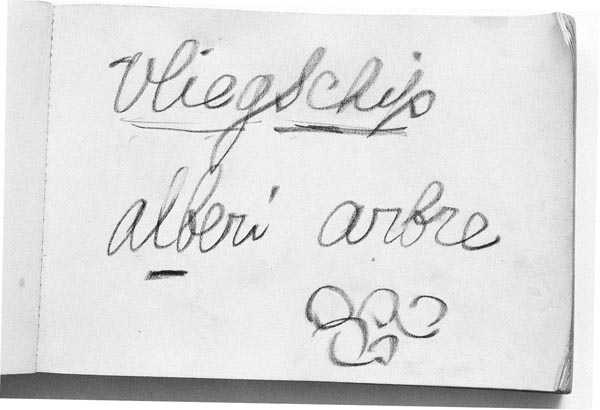 vliegschip
alberi arbre